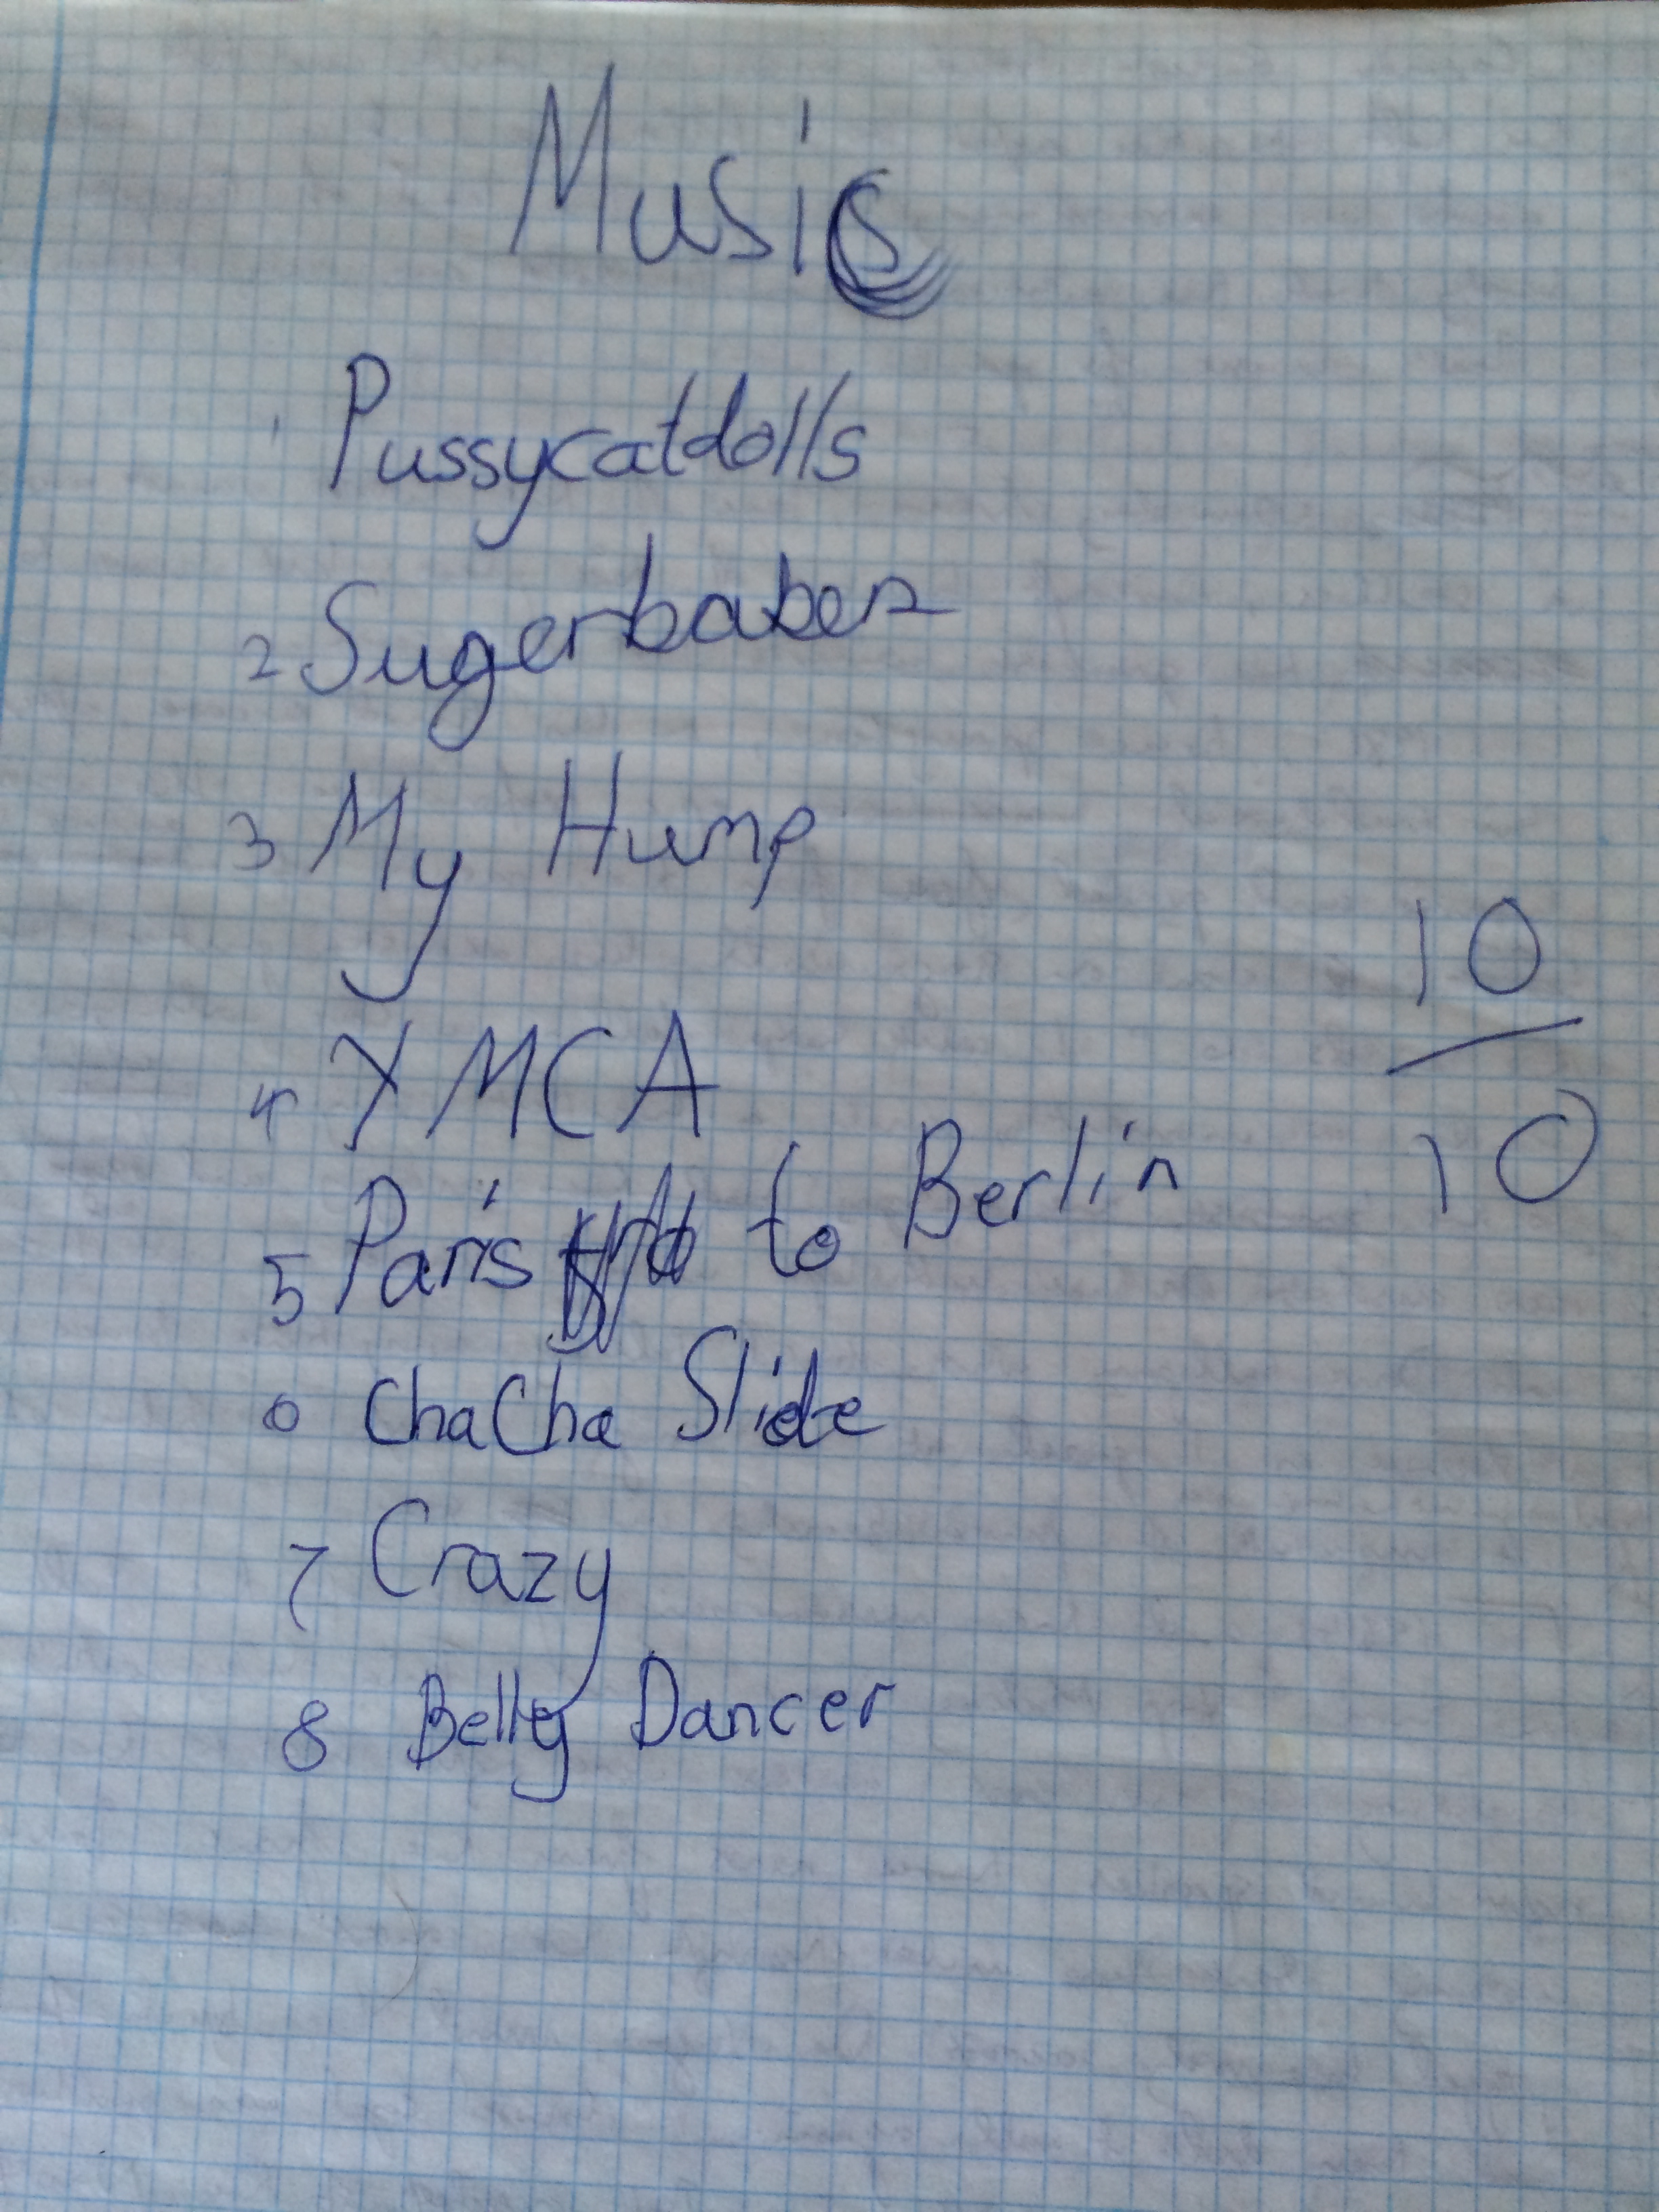 Music
1 Pussycatdolls
2 Sugerbabes
3 My Hump
4 YMCA
10
10
5 Paris to Berlin
6 ChaCha Slide
7 Crazy
8 Belly Dancer